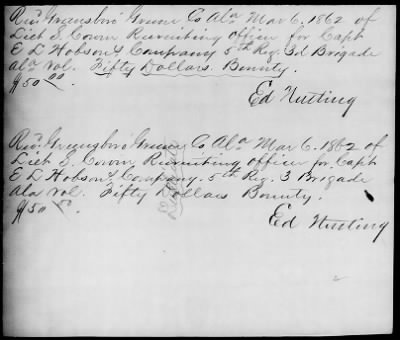 Recd Greensboro' Greene Co Ala Mar 6. 1862 of
Lieut S. Cowin Recruiting officer for Capt
E D Hobson's Company 5th Reg. 3d Brigade
Ala Vol. Fifty Dollars Bounty.
$50.00.
Ed Nutting
Recd Greensboro' Greene Co, Ala Mar 6. 1862 of
Lieut S. Cowin Recruiting Officer for Capt
E D Hobson's Company. 5th Reg. 3 Brigade
Ala Vol. Fifty Dollars Bounty.
$50
Ed Nutting